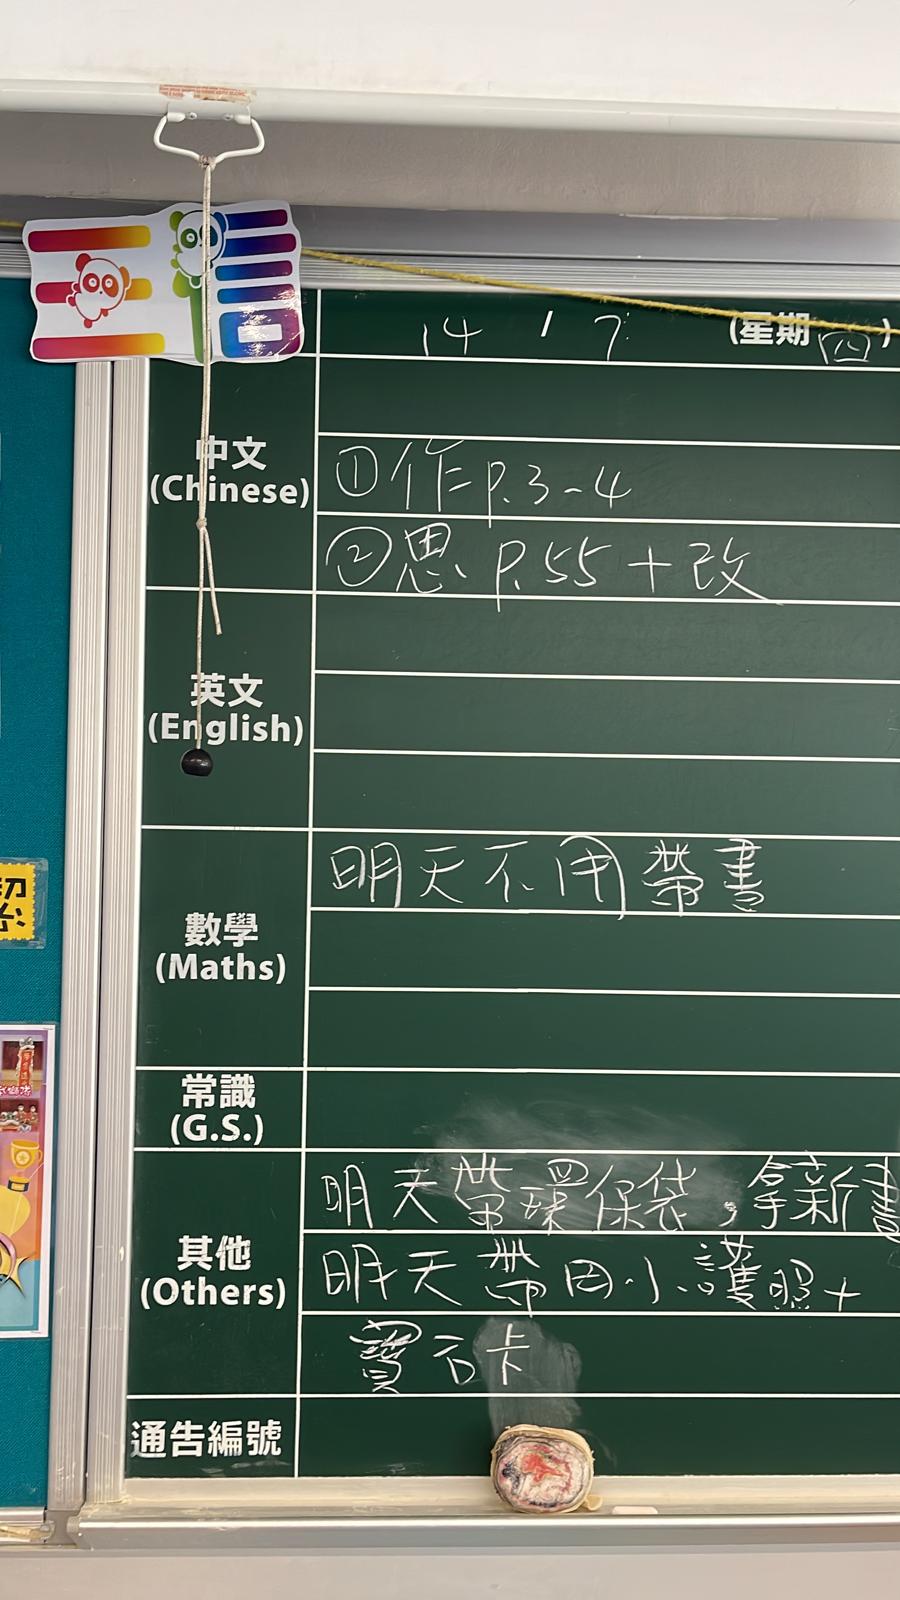 14 / 7 (星期四)
中文
(Chinese)
①作 P.3-4
②思 P.55+改
英文
(English)
數學
(Maths)
明天不用帶書
常識
(G.S.)
其他
(Others)
明天帶環保袋,拿新書
明天帶田小護照+
寶石卡
通告編號